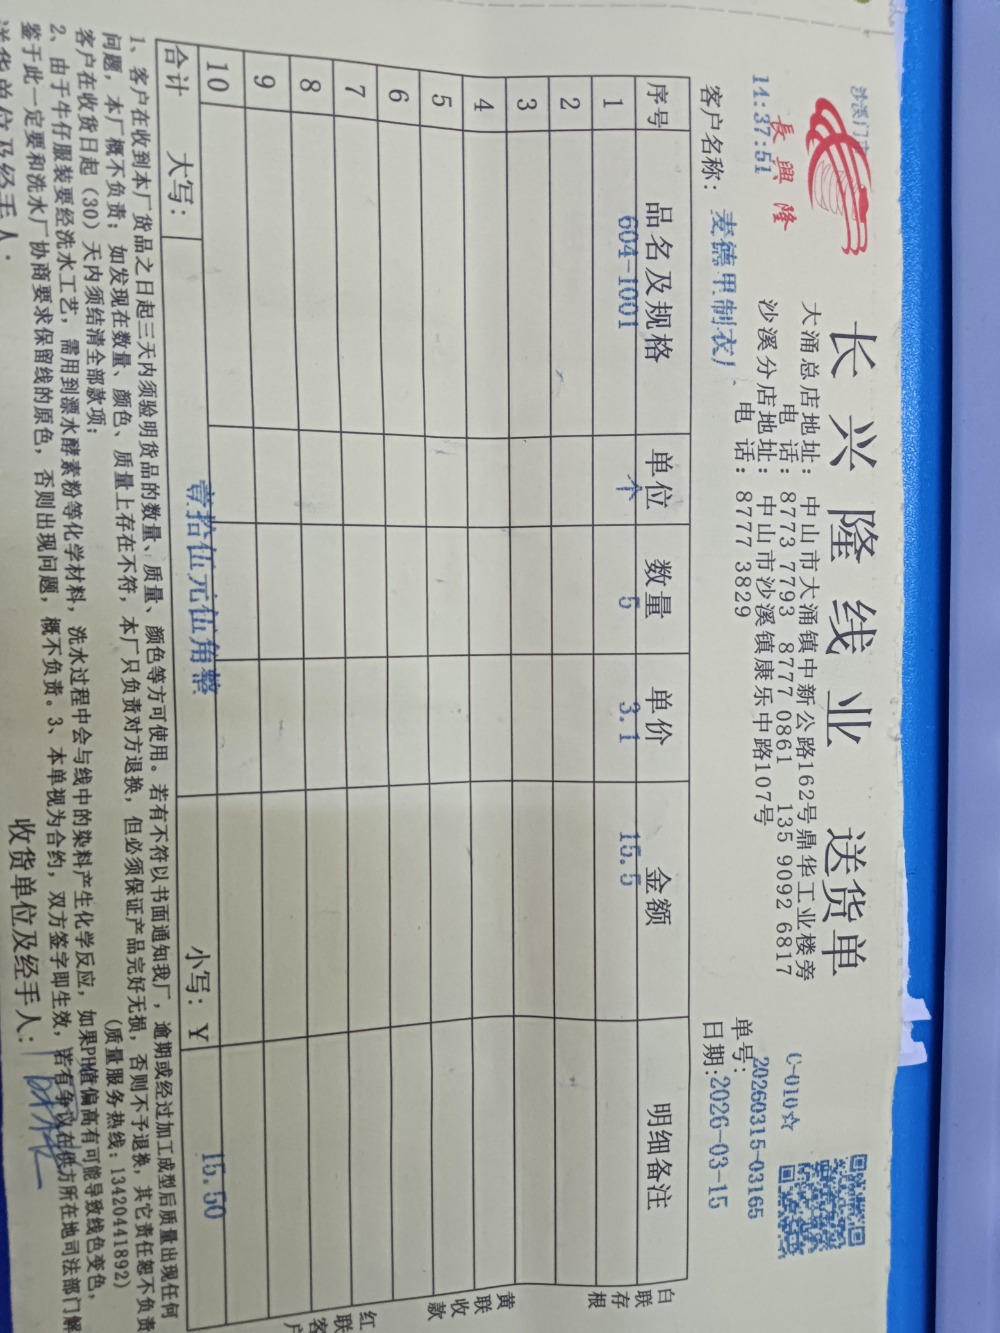 沙溪门
14:37:51
長興隆
长兴隆线业 送货单
大涌总店地址：中山市大涌镇中新公路162号鼎华工业楼旁
电 话：8773 7793 8777 0861 135 9092 6817
沙溪分店地址：中山市沙溪镇康乐中路107号
电 话：8777 3829
C-010☆
单号：20260315-03165
客户名称：麦德甲制衣厂
日期：2026-03-15
序号 品名及规格 单位 数量 单价 金额 明细备注
1 604-1001 个 5 3.1 15.5
2
3
4
5
6
7
8
9
10
合计 大写：壹拾伍元伍角整 小写：￥15.50
白联存根
黄联收款
红联客户
1、客户在收到本厂货品之日起三天内须验明货品的数量、质量、颜色等方可使用。若有不符以书面通知我厂，逾期或经过加工成型后质量出现任何
问题，本厂概不负责；如发现在数量、颜色、质量上存在不符，本厂只负责对方退换，但必须保证产品完好无损，否则不予退换，其它责任恕不负责
客户在收货日起（30）天内须结清全部款项；
（质量服务热线：13420441892）
2、由于牛仔服装要经洗水工艺，需用到漂水酵素粉等化学材料，洗水过程中会与线中的染料产生化学反应，如果PH值偏高有可能导致线色变色，
鉴于此一定要和洗水厂协商要求保留线的原色，否则出现问题，概不负责。3、本单视为合约，双方签字即生效，若有争议在供方所在地司法部门解
送货单位及经手人：
收货单位及经手人：